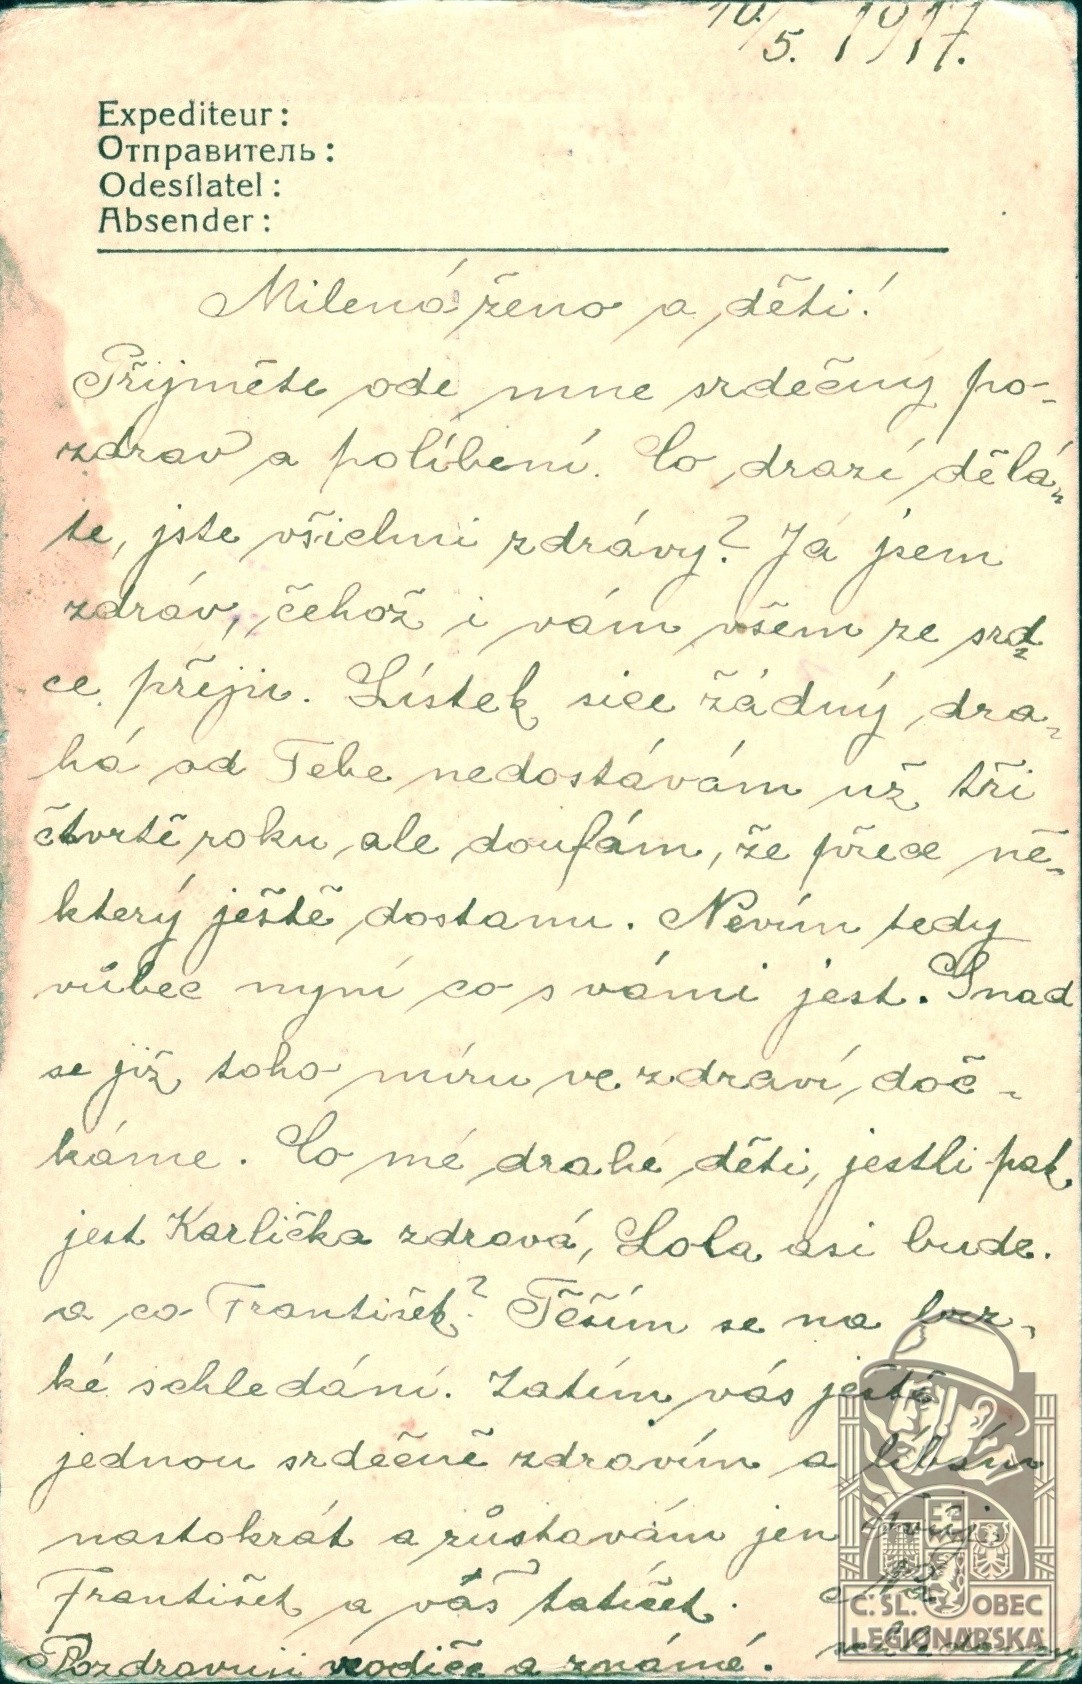 10/5. 1917.
Expediteur:
Отправитель:
Odesílatel:
Absender:
Milená ženo a děti!
Přijměte ode mne srdečný po-
zdrav a políbení. Co drazí dělá-
te, jste všichni zdrávy? Já jsem
zdráv, čehož i vám všem ze srd-
ce přeji. Lístek sice žádný dra-
há od Tebe nedostávám už tři
čtvrtě roku, ale doufám, že přece ně-
který ještě dostanu. Nevím tedy
vůbec nyní co s vámi jest. Snad
se již toho míru ve zdraví doč-
káme. Co mé drahé děti, jestli pak
jest Karlička zdravá, Lola asi bude.
a co František? Těším se na brz-
ké schledání. Zatím vás ještě
jednou srdečně zdravím a líbám
nastokrát a zůstavám jen Tvůj
František a váš tatíček. Na
Pozdravuji rodiče a známé. schledanou
Č. SL. OBEC
LEGIONÁŘSKÁ